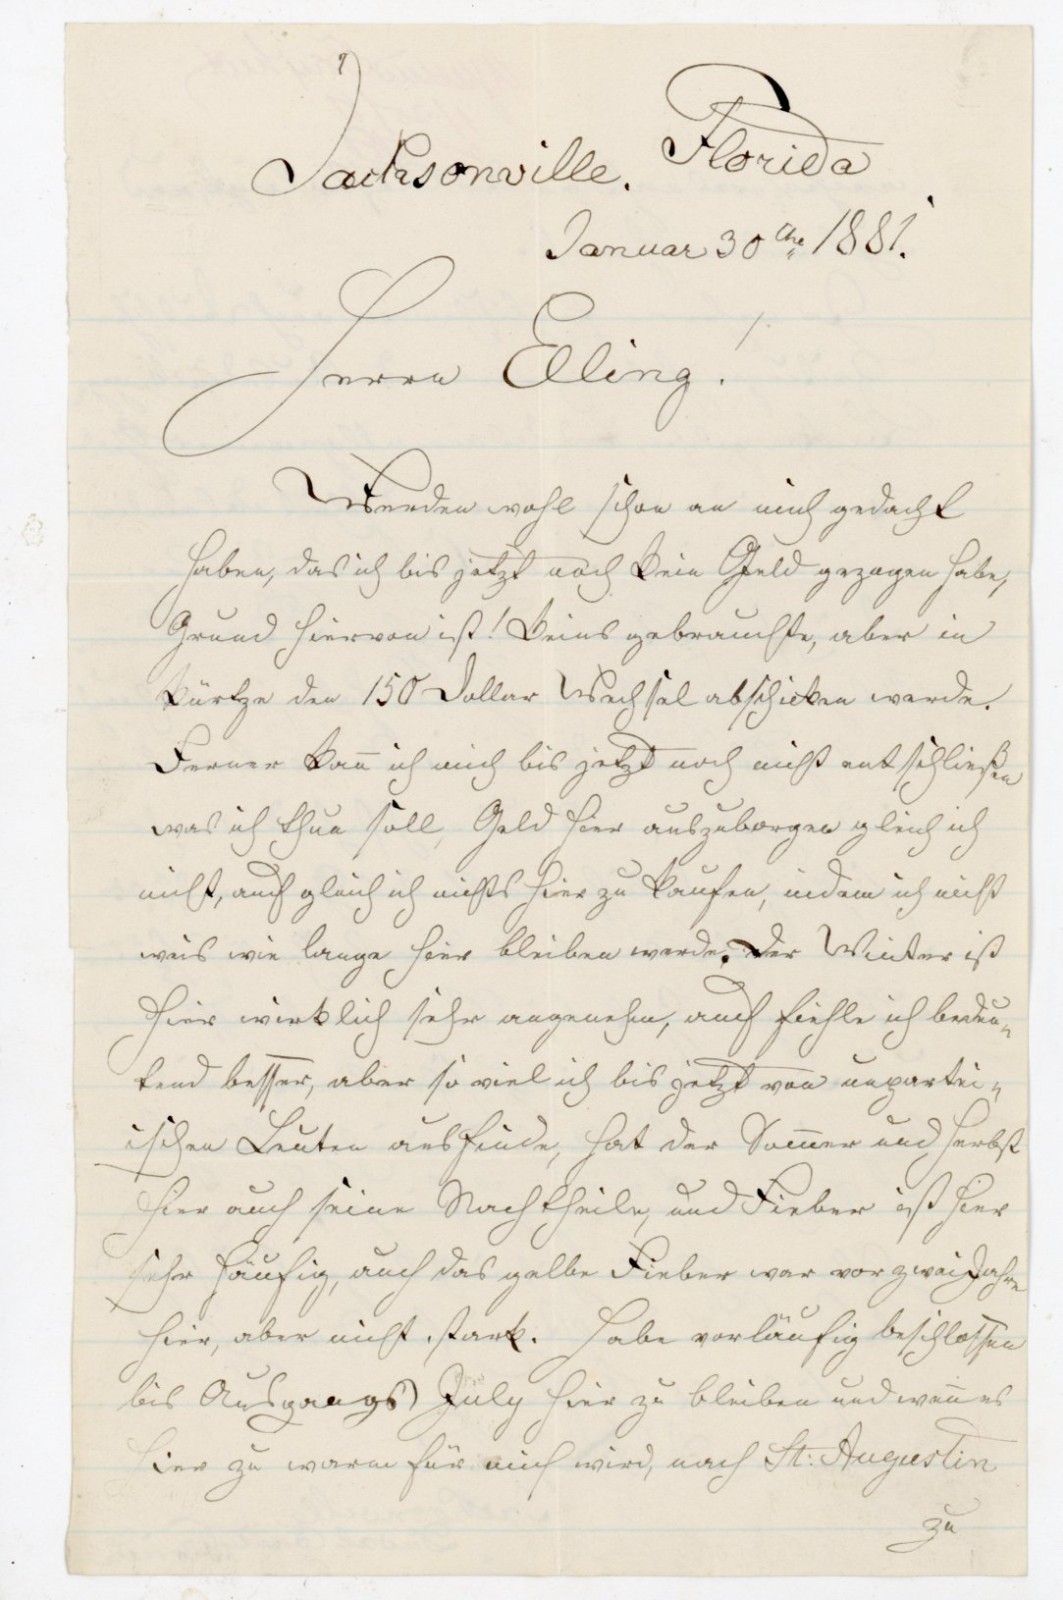 Jacksonville. Florida
Januar 30the 1881.
Herrn Elling!
Werden wohl schon an mich gedacht
haben, das ich bis jetzt noch kein Geld gezogen habe,
Grund hiervon ist! keins gebrauchte, aber in
kürtze den 150 Dollar Wechsel abschicken werde.
Ferner kan̅ ich mich bis jetzt noch nicht entschließen
was ich thun soll, Geld hier auszuborgen gleich ich
nicht, auch gleich ich nichts hier zu kaufen, indem ich nicht
weis wie lange hier bleiben werde. Der Winter ist
hier wirklich sehr angenehm, auch fiehle ich bedeu„
tend besser, aber so viel ich bis jetzt von unpartei„
ischen Leuten ausfinde, hat der Som̅er und Herbst
hier auch seine Nachtheile, und Fieber ist hier
sehr häufig, auch das gelbe Fieber war vor zwei Jahre
hier, aber nicht stark. Habe vorläufig beschlossen
bis Ausgangs July hier zu bleiben und wen̅ es
hier zu warm für mich wird, nach St: Augustin
zu